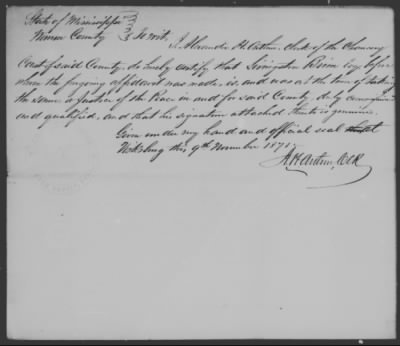 State of Mississippi
Warren County } To Wit, I, Alexander H. Arthur, Clerk of the Chancery
Court of said County, do hereby certify that Livingston Esqr. before
whom the forgoing affidavit was made, is, and was at the time of taking
the same a Justice of the Peace in and for said County, duly commissioned
and qualified, and that his signature attached thereto is genuine.
Given under my hand and official seal
Vicksburg this 9th November 1871.
A H Arthur, Clk